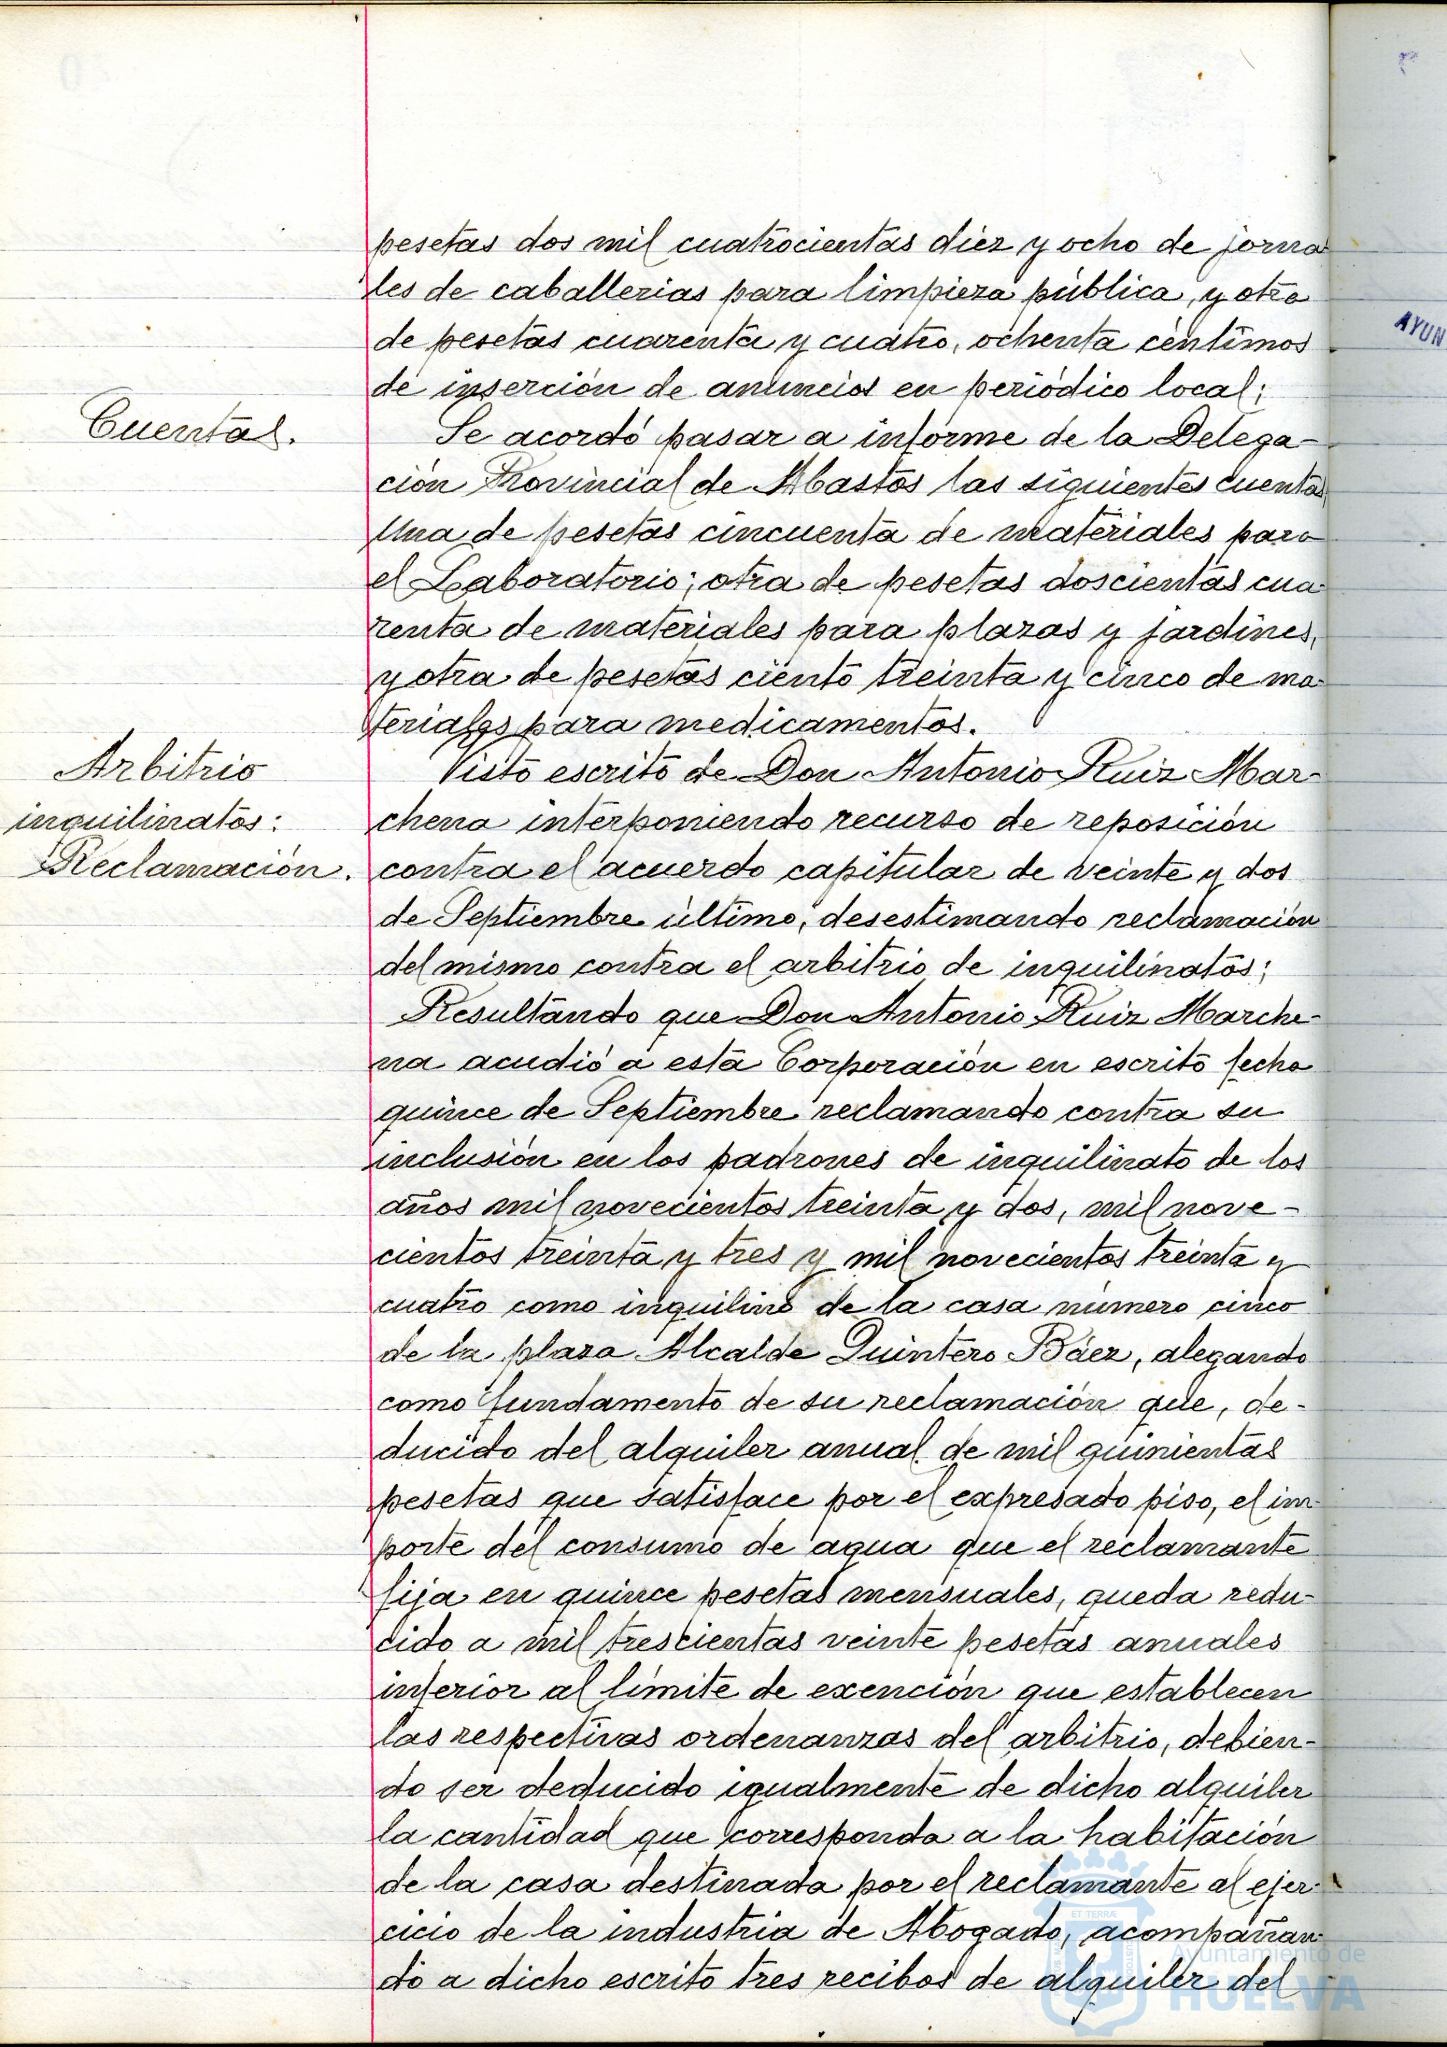 pesetas dos mil cuatrocientas diez y ocho de jorna
les de caballerias para limpieza pública, y otra
de pesetas cuarenta y cuatro, ochenta céntimos
de inserción de anuncios en periódico local;
Cuentas.
Se acordó pasar a informe de la Delega-
ción Provincial de Abastos las siguientes cuentas
Una de pesetas cincuenta de materiales para
el Laboratorio; otra de pesetas doscientas cua
renta de materiales para plazas y jardines,
y otra de pesetas ciento treinta y cinco de ma-
teriales para medicamentos.
Arbitrio
inquilinatos:
Reclamación.
Visto escrito de Don Antonio Ruiz Mar-
chena interponiendo recurso de reposición
contra el acuerdo capitular de veinte y dos
de Septiembre último, desestimando reclamación
del mismo contra el arbitrio de inquilinatos;
Resultando que Don Antonio Ruiz Marche-
na acudió a esta Corporación en escrito fecha
quince de Septiembre reclamando contra su
inclusión en los padrones de inquilinato de los
años mil novecientos treinta y dos, mil nove-
cientos treinta y tres y mil novecientos treinta y
cuatro como inquilino de la casa número cinco
de la plaza Alcalde Quintero Báez, alegando
como fundamento de su reclamación que, de-
ducido del alquiler anual de mil quinientas
pesetas que satisface por el expresado piso, el im-
porte del consumo de agua que el reclamante
fija en quince pesetas mensuales, queda redu-
cido a mil trescientas veinte pesetas anuales
inferior al límite de exención que establecen
las respectivas ordenanzas del arbitrio, debien-
do ser deducido igualmente de dicho alquiler
la cantidad que corresponda a la habitación
de la casa destinada por el reclamante al ejer-
cicio de la industria de Abogado, acompañan-
do a dicho escrito tres recibos de alquiler del
AYUN
ET TERRÆ
Ayuntamiento de
HUELVA